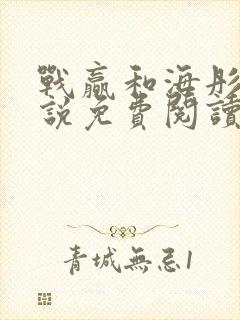 戰贏和海彤
說免費閱讀
青城無忌1